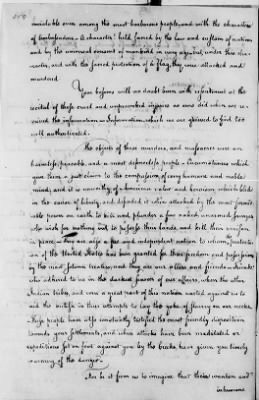 inviolable even among the most barbarous people, and with the characters
of Ambassadors - a character held sacred by the law and custom of nations
and by the universal consent of mankind in every age; and, under these cha-
racters, and with the sacred protection of a flag, they were attacked and
murdered
Your bosoms will no doubt burn with resentment at the
recital of these cruel and unprovoked injuries as ours did when we re-
ceived the information - Information, which we are grieved to find too
well authenticated.
The objects of these murders, and massacres were an
harmless, peaceable, and a most defenceless people - Circumstances which
give them a just claim to the compassion, of every humane and noble
mind; and it is unworthy of a generous valor and heroism which bleeds
in the cause of liberty, and defended it when attacked by the most formid-
able power on earth to rob and plunder a few naked unarmed savages
who wish for nothing but to possess their lands and kill their venison
in peace - They are also a free and independent nation to whom, protection
of the United States has been granted for their freedom and possessions
by the most solemn treaties, and they are our allies and friends - Friends
who adhered to us in the darkest period of our affairs, when the other
Indian tribes, and even a great part of this nation united against us to
aid the british in their attempts to lay the yoke of slavery on our necks
- These people have also constantly testified the most friendly disposition
towards your settlements, and when attacks have been meditated or
expeditions set on foot against you by the Creeks have given you timely
warning of the danger -
Far be it from us to imagine that these wanton and
inhumane